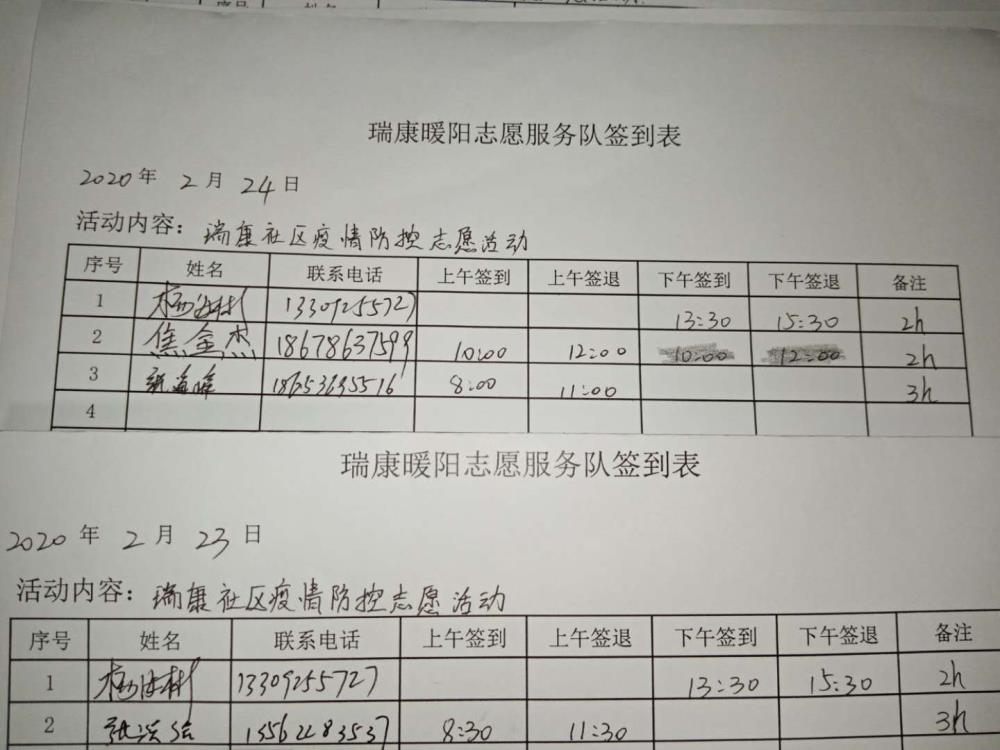 序号 姓名
瑞康暖阳志愿服务队签到表
2020 年 2 月 24 日
活动内容：瑞康社区疫情防控志愿活动
序号 姓名 联系电话 上午签到 上午签退 下午签到 下午签退 备注
1 13309255727 13:30 15:30 2h
2 焦金杰 18678637599 10:00 12:00 10:00 12:00 2h
3 8:00 11:00 3h
4
瑞康暖阳志愿服务队签到表
2020 年 2 月 23 日
活动内容：瑞康社区疫情防控志愿活动
序号 姓名 联系电话 上午签到 上午签退 下午签到 下午签退 备注
1 13309255727 13:30 15:30 2h
2 1562283537 8:30 11:30 3h